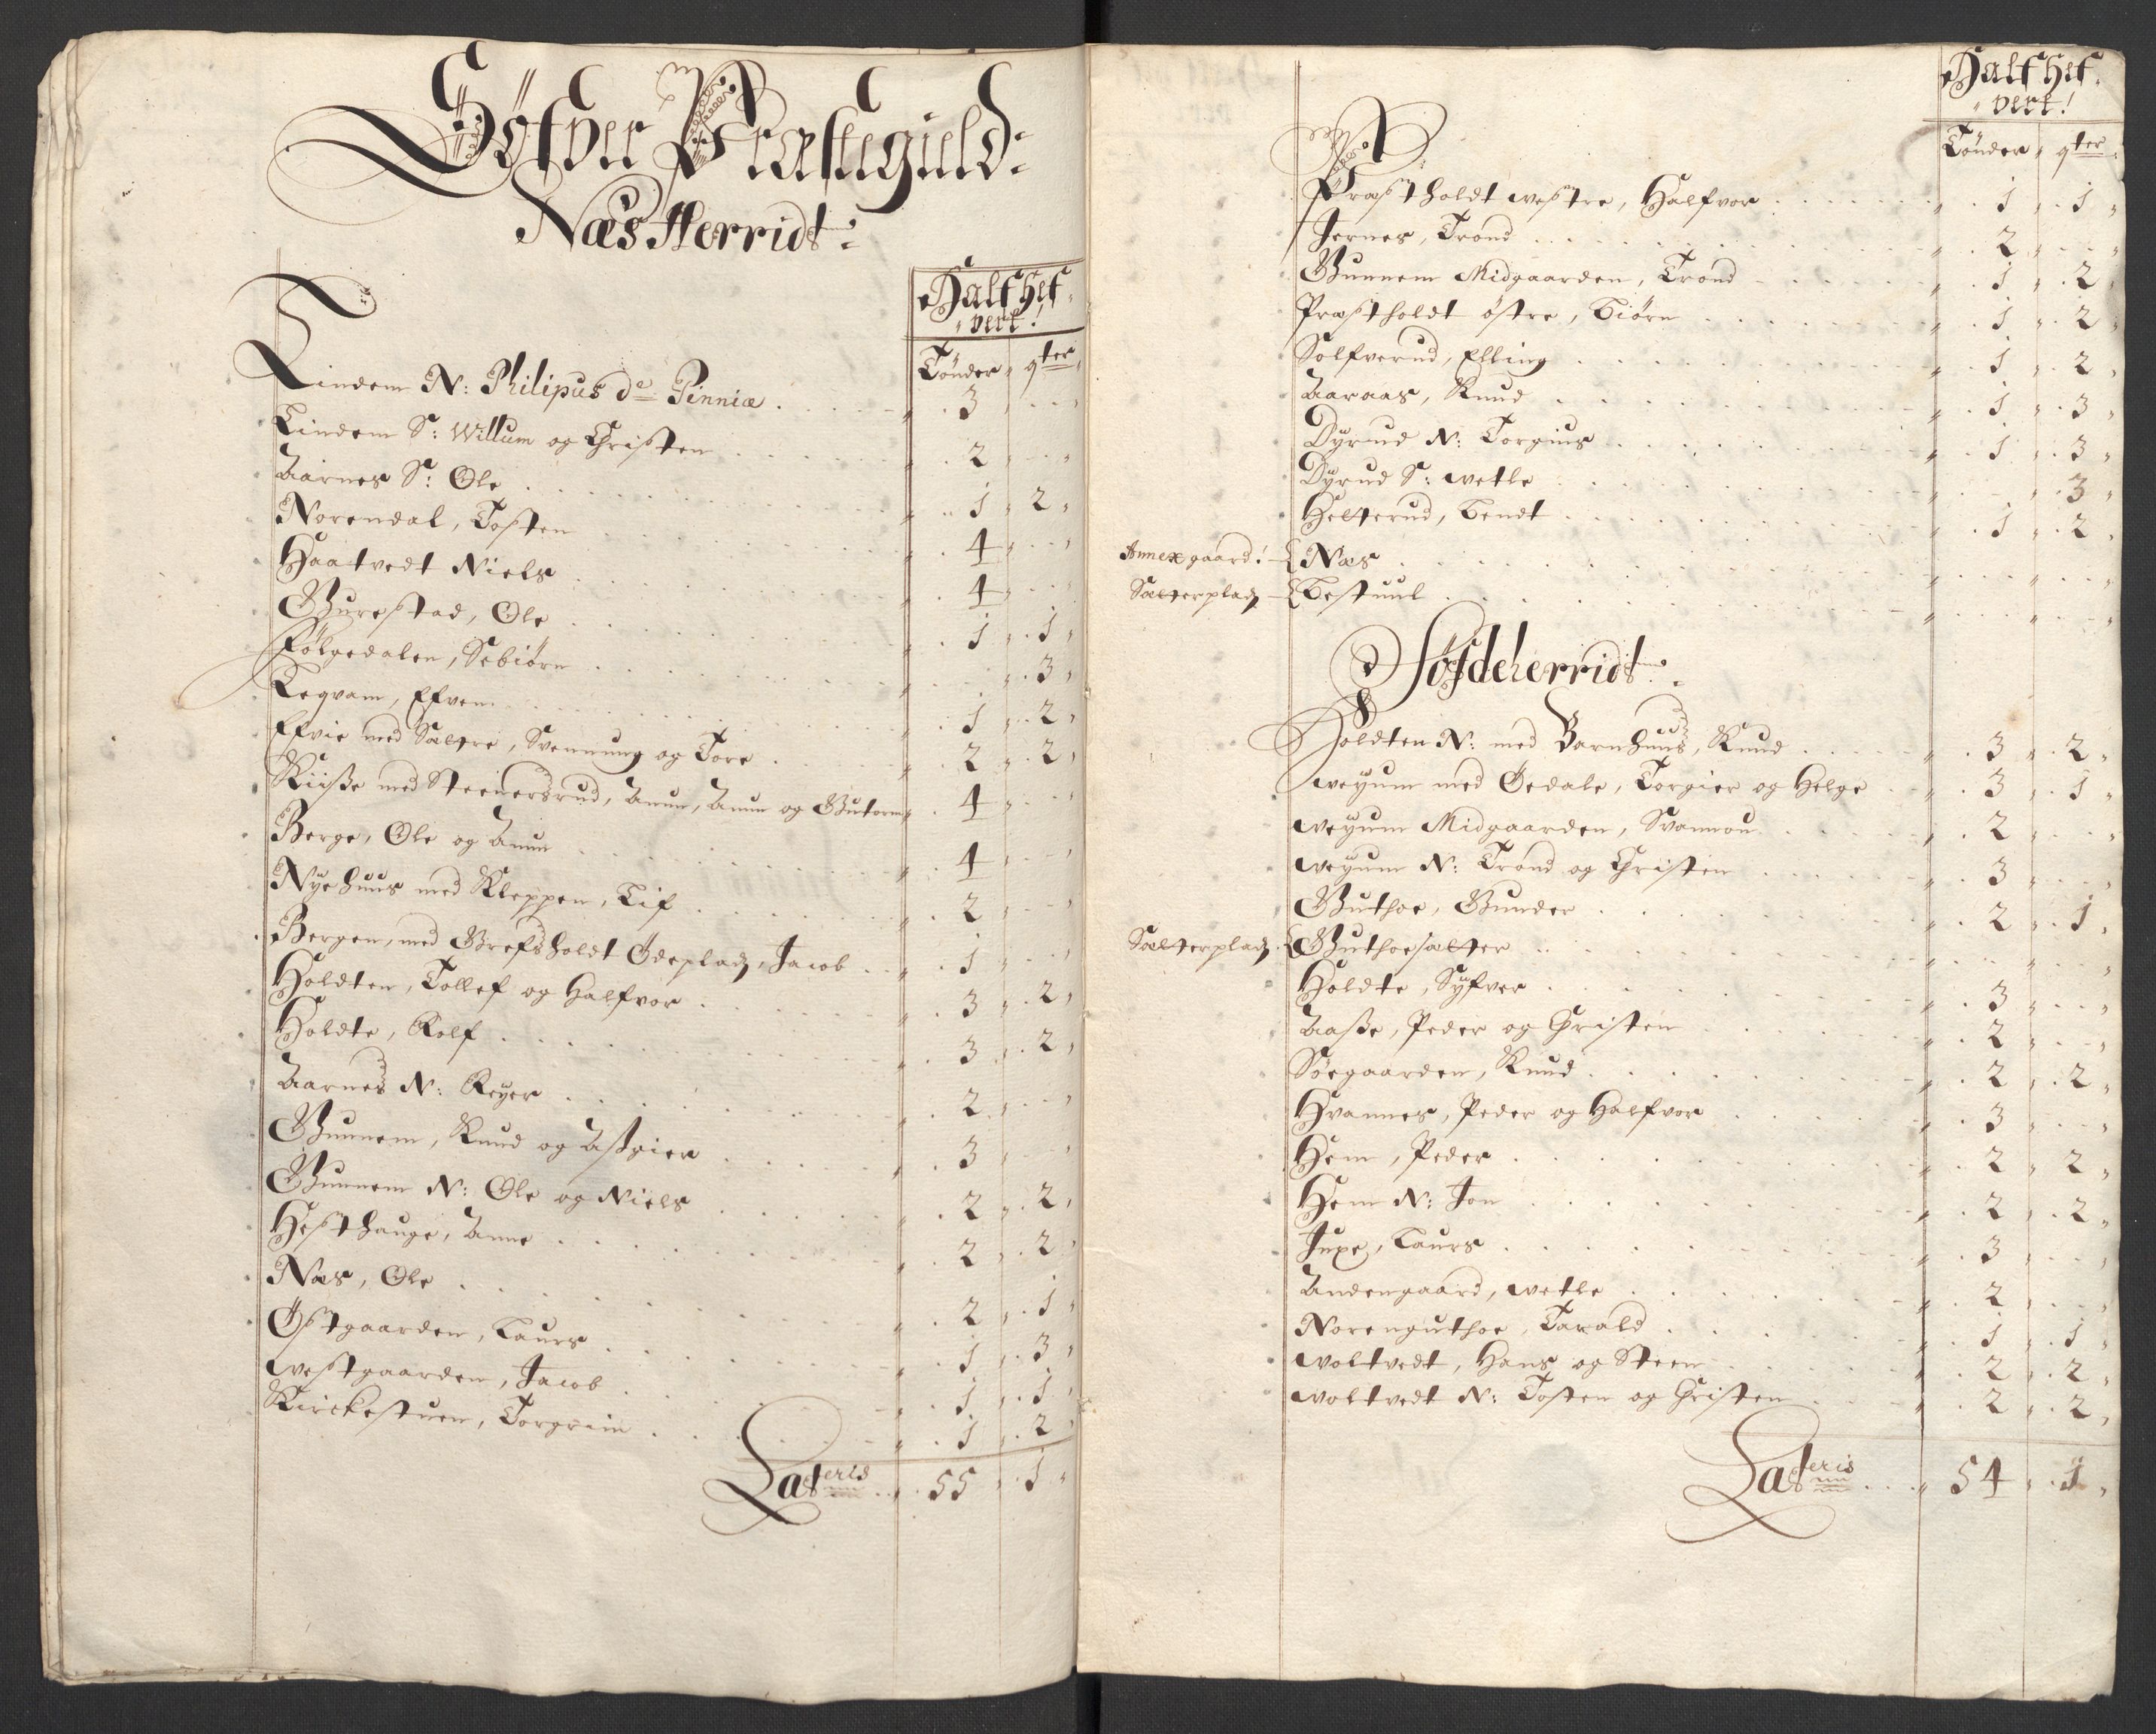 Söfver Præstegield:
Næs Herridt:
Half Hel-
vert!
Tönder, qter
Lindem N: Philipus de Pinniæ . . . 3
Lindem S: Willum og Christen . . . 2
Aarnes S: Ole . . . 1 2
Norendal, Tosten . . . 4
Haatvedt Niels . . . 4
Gurestad, Ole . . . 1 1
Følgedalen, Sebiörn . . . 3
Legvam, Efvem . . . 1 2
Efvie med Sæltre, Svennung og Tore . . . 2 2
Riisse med Steenersrud, Anun, Anun og Gutorm 4
Berge, Ole og Anun . . . 4
Nyehuus med Kleppen, Lif . . . 2
Bergen, med Grefsholdt Ödeplads, Jacob . . . 1
Holdten, Tollef og Halfvor . . . 3 2
Holdte, Rolf . . . 3 2
Aarnes N: Reyer . . . 2
Gunnem, Knud og Assgier . . . 3
Gunnem N: Ole og Niels . . . 2 2
Hesthauge, Anne . . . 2 2
Næs, Ole . . . 2 1
Östgaarden, Laurs . . . 1 3
westgaarden, Jacob . . . 1 1
Kirckestuen, Torgrim . . . 1 2
Lateris . . . 55 1
Half Hel-
vert!
Tönder, qter
Præstholdt westre, Halfvor . . . 1 1
Jernes, Trond . . . 2
Gunnem Midgaarden, Trond . . . 1 2
Præstholdt östre, Biörn . . . 1 2
Solfverud, Elling . . . 1 2
Aaraas, Knud . . . 1 3
Dyrud N: Torgius . . . 1 3
Dyrud S: wetle . . . 3
Helterud, Bendt . . . 1 2
Annexgaard! Næs . . .
Sælterplads Bestuul . . .
Söfdeherridt:
Holdten N: med Barnhuus, Knud . . . 3 2
weyum med Öedale, Torgier og Helge . . . 3 1
weyum Midgaarden, Svannou . . . 2
weyum N: Trond og Christen . . . 3
Guthoe, Gunder . . . 2 1
Sælterplads Guthoesælter . . .
Holdte, Syfver . . . 3
Aasse, Peder og Christen . . . 2
Söegaarden, Knud . . . 2 2
Hvannes, Peder og Halfvor . . . 3
Hem, Peder . . . 2 2
Hem N: Jon . . . 2 2
Juxe, Laurs . . . 3
Andengaard, wetle . . . 2
Norenguthoe, Tarald . . . 1 1
woltvedt, Hans og Steen . . . 2 2
woltvedt N: Tosten og Christen . . . 2 2
Lateris . . . 54 1